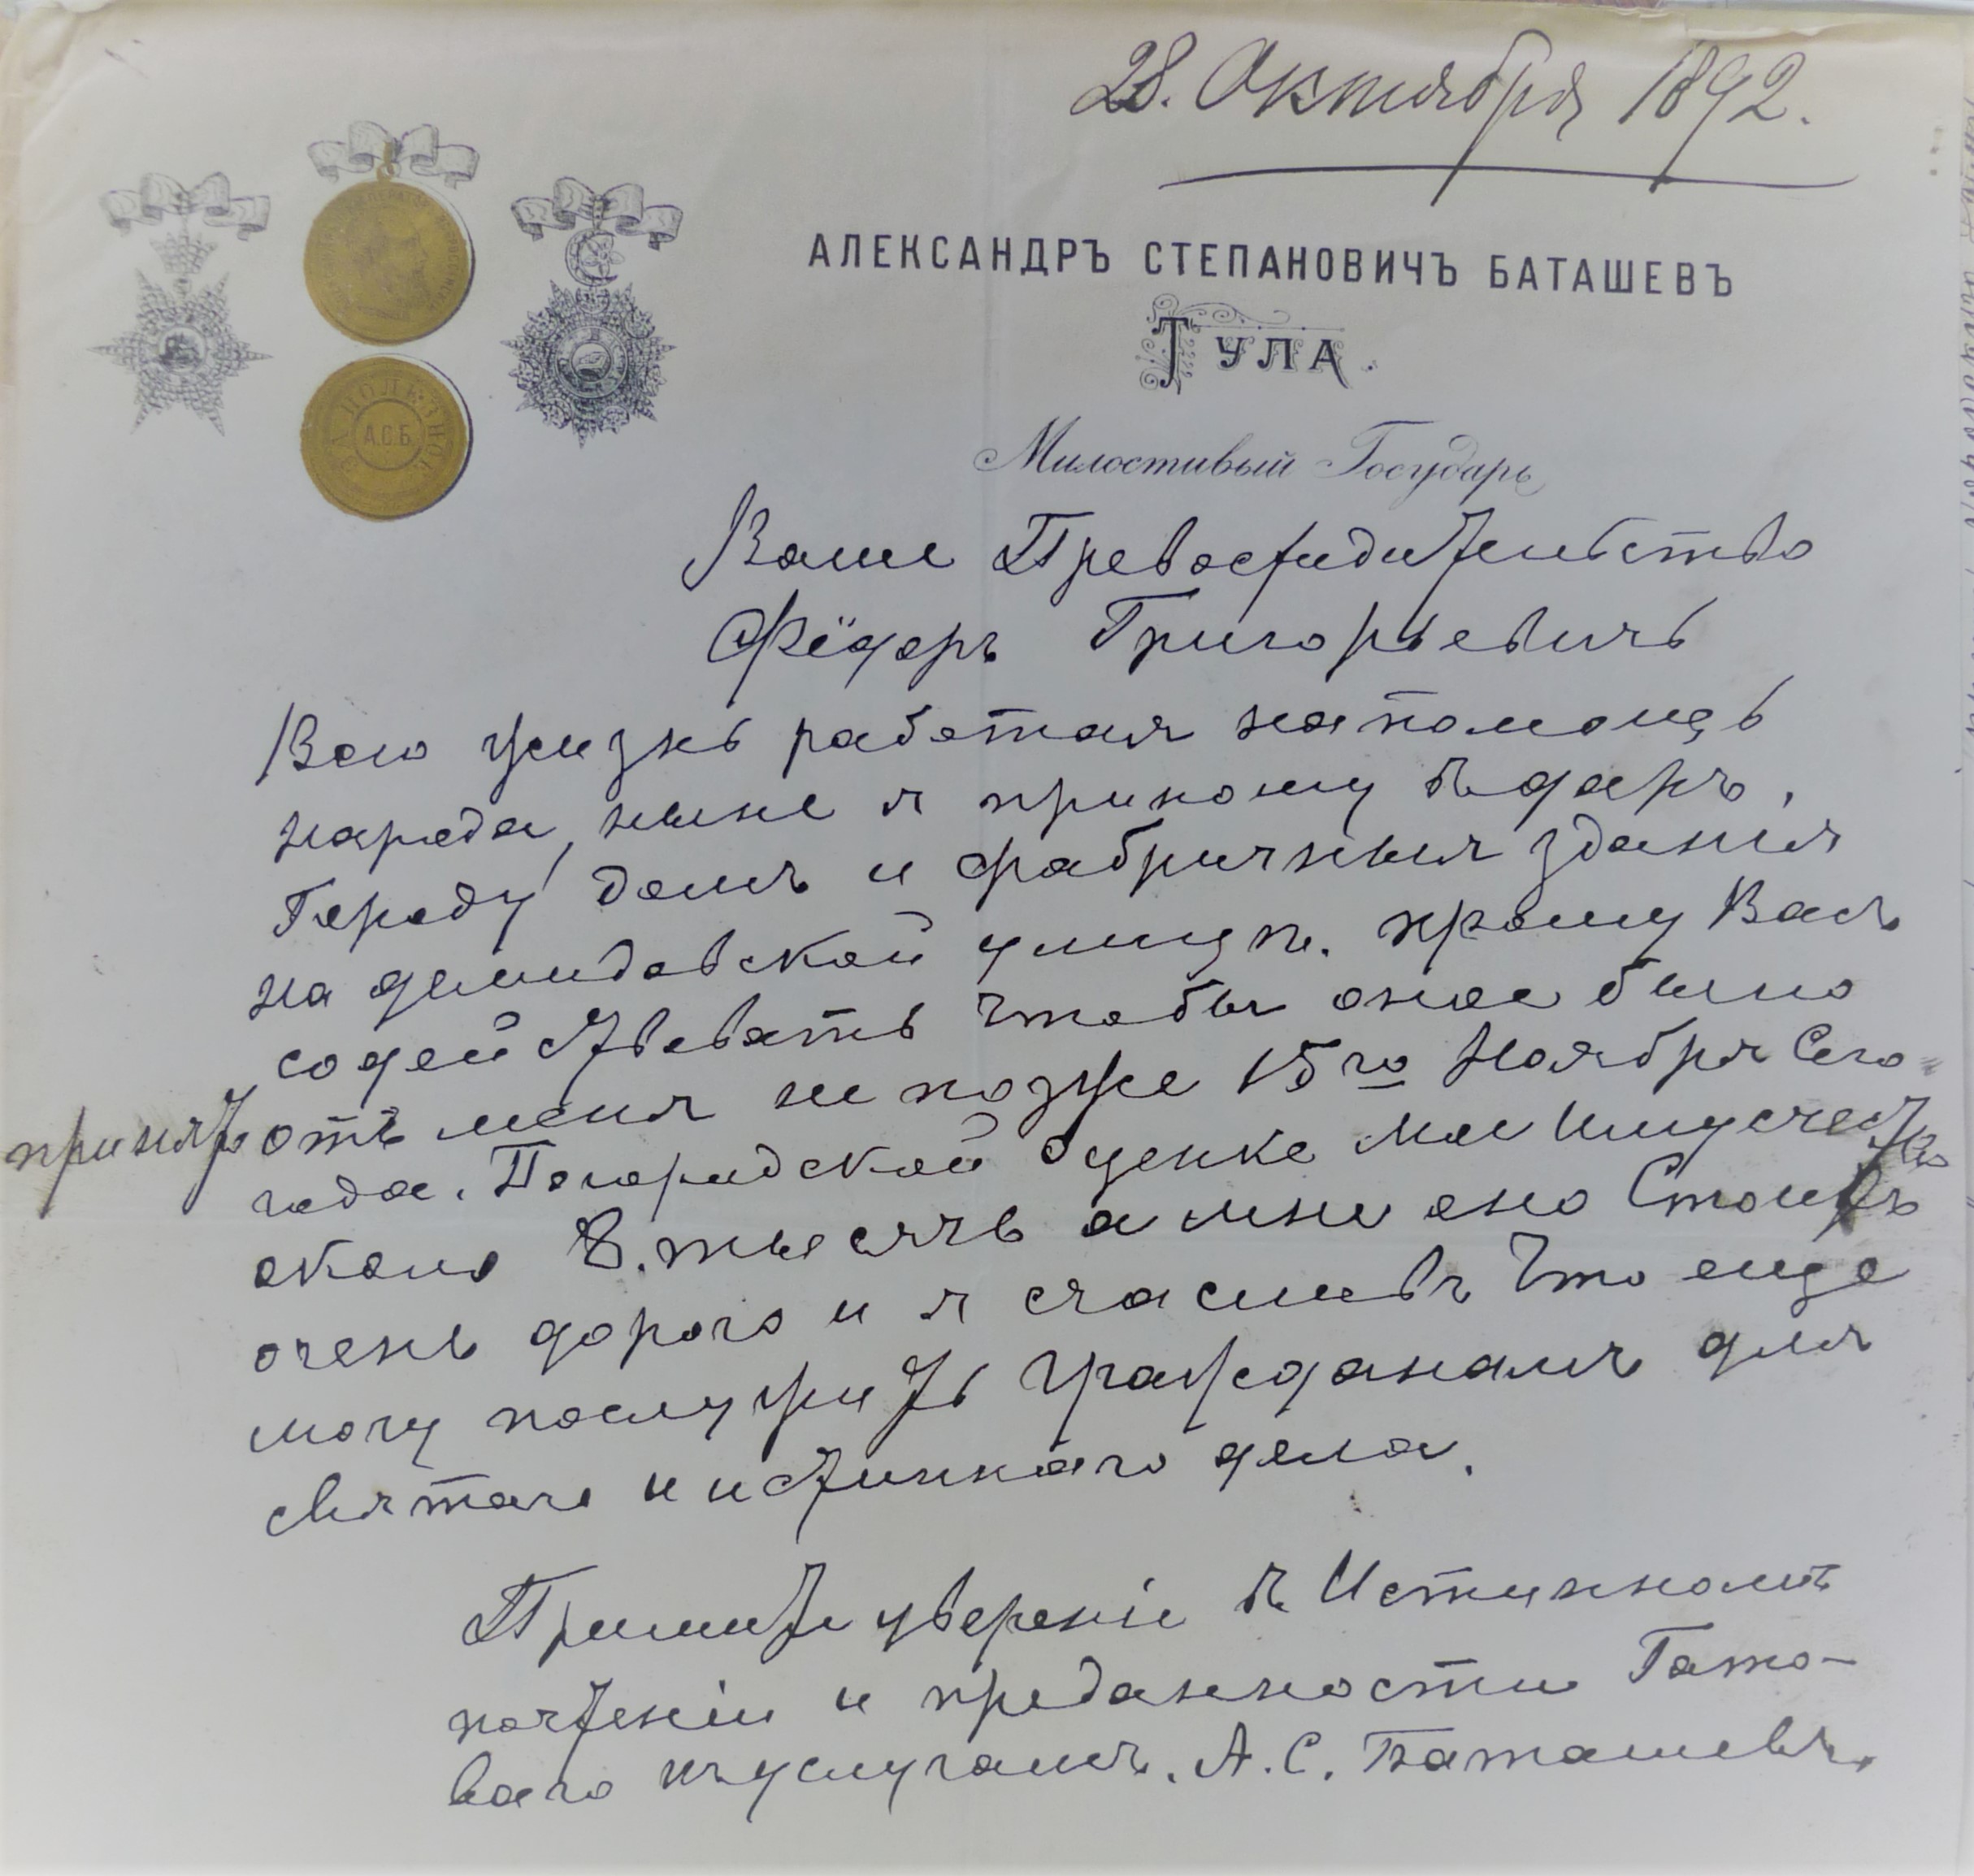 28. Октября 1892.
АЛЕКСАНДРЪ СТЕПАНОВИЧЪ БАТАШЕВЪ
ТУЛА.
ЗА ПОЛЕЗНОЕ
А.С.Б.
Милостивый Государь
Ваше Превосходительство
Фёдоръ Григорьевичъ
Всю жизнь работая на помощь
народа, ныне я приношу в даръ,
Городу домъ и фабричныя зданія
на демидовской улице. прошу Васъ
содействовать чтобы оное было
принято отъ меня не позже 15го Ноября Сего
года. По городской оценке мое имущество
около 8. тысячь а мне оно Стоитъ
очень дорого и я счасливъ Что еще
могу послужить гражданамъ для
святаго и истиннаго дела.
Примите уверенiе в Истинномъ
почтенiи и преданности Гото-
ваго къ услугамъ. А. С. Баташевъ.